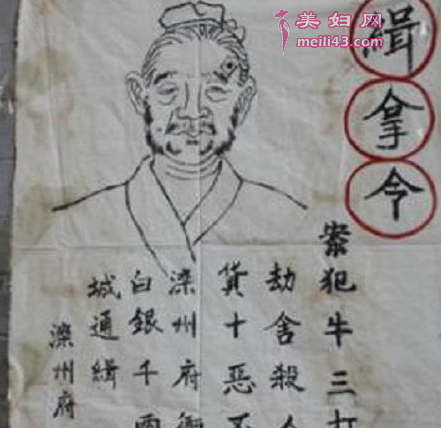 美妇网
meili43.com
緝拿令
案犯牛三打
劫舍殺人
貨十惡不
滦州府衙
白銀千両
城通緝
滦州府